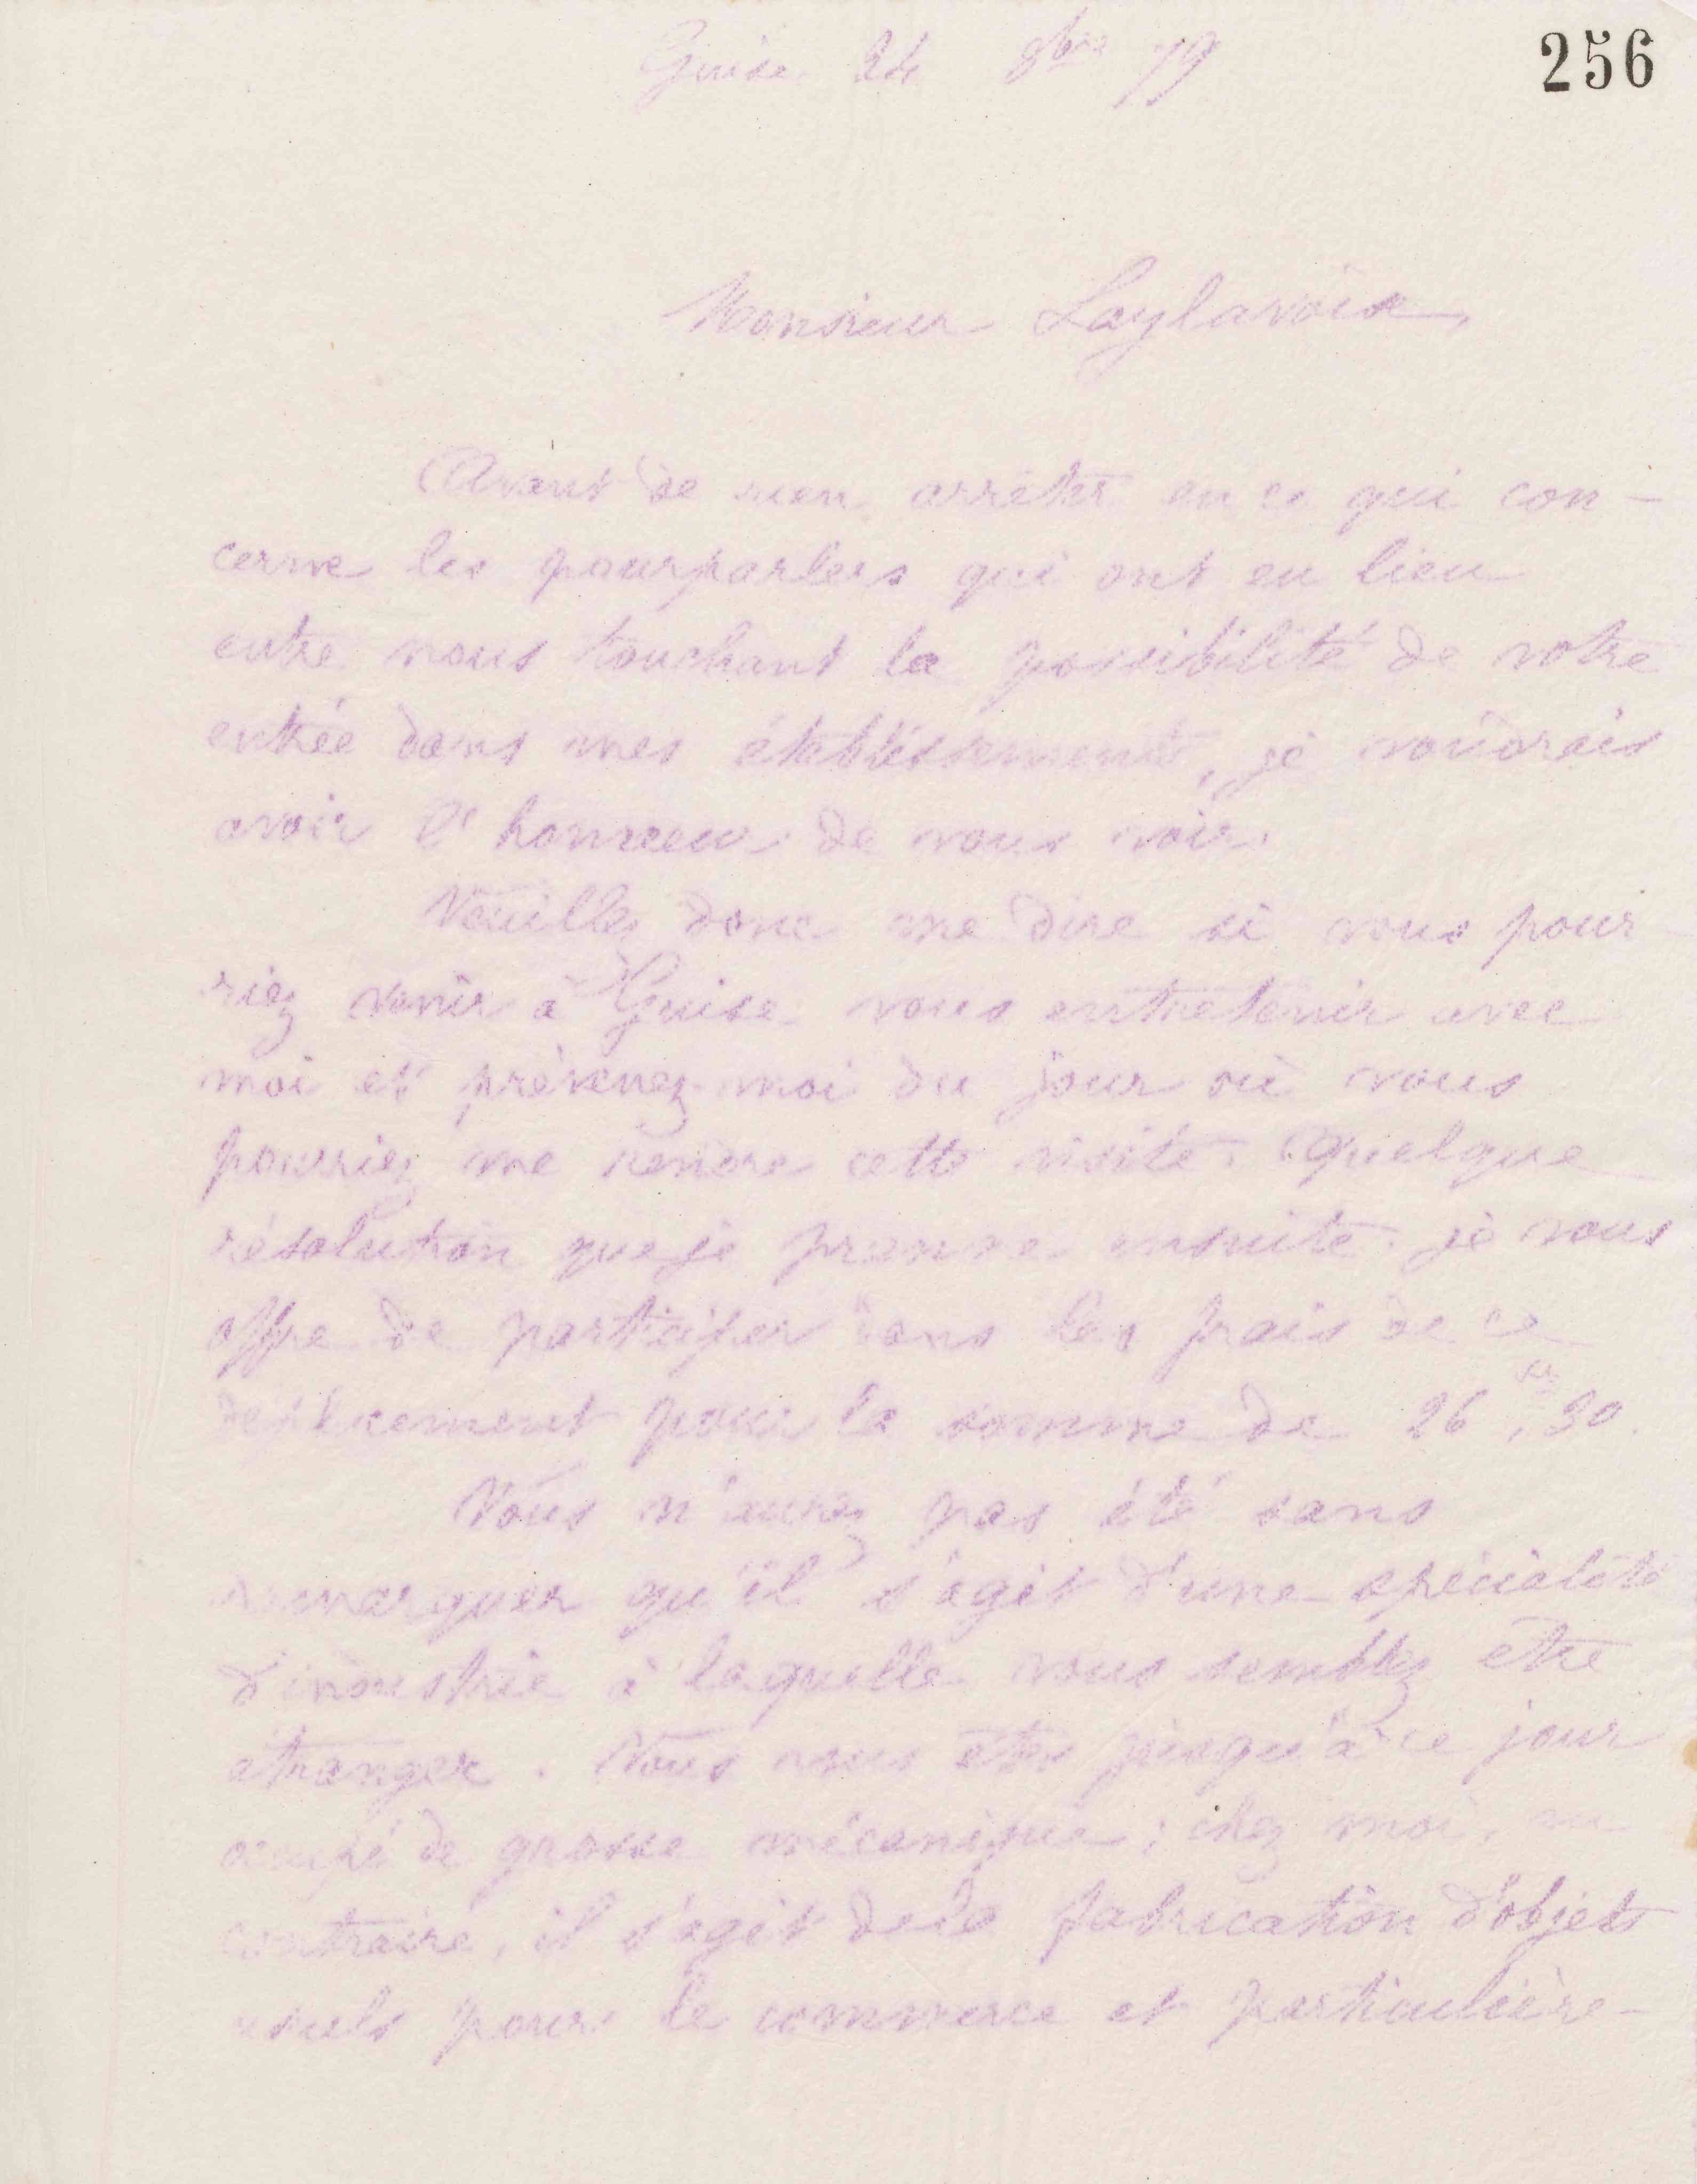 256
Guise 24 8bre 79
Monsieur Laylavoix,
Avant de rien arrêter en ce qui con-
cerne les pourparlers qui ont eu lieu
entre nous touchant la possibilité de votre
entrée dans mes établissements, je voudrais
avoir l'honneur de vous voir.
Veuillez donc me dire si vous pour
riez venir à Guise vous entretenir avec
moi et prévenez-moi du jour où vous
pourriez me rendre cette visite. Quelque
résolution que je prenne ensuite, je vous
offre de participer dans les frais de ce
déplacement pour la somme de 26 frs, 30.
Vous n'aurez pas été sans
remarquer qu'il s'agit d'une spécialité
d'industrie à laquelle vous semblez être
étranger. Vous vous êtes jusqu'à ce jour
occupé de grosse mécanique ; chez moi, au
contraire, il s'agit de la fabrication d'objets
usuels pour le commerce et particulière-